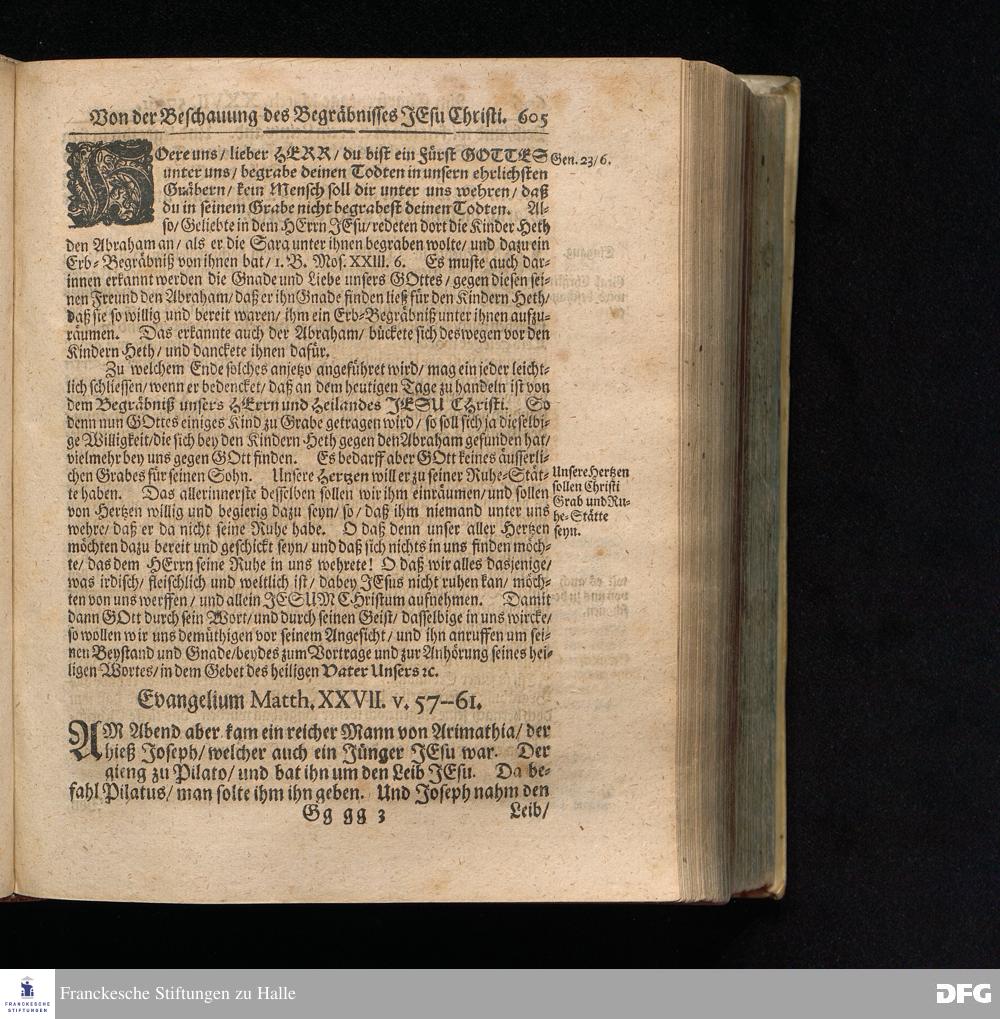 Von der Beschauung des Begräbnisses JEsu Christi. 605
HOere uns/ lieber HERR/ du bist ein Fürst GOTTES
unter uns/ begrabe deinen Todten in unsern ehrlichsten
Gräbern/ kein Mensch soll dir unter uns wehren/ daß
du in seinem Grabe nicht begrabest deinen Todten. Al-
so/ Geliebte in dem HErrn JEsu/ redeten dort die Kinder Heth
den Abraham an/ als er die Sara unter ihnen begraben wolte/ und dazu ein
Erb-Begräbniß von ihnen bat/ 1. B. Mos. XXIII. 6. Es muste auch dar-
innen erkannt werden die Gnade und Liebe unsers GOttes/ gegen diesen sei-
nen Freund den Abraham/ daß er ihn Gnade finden ließ für den Kindern Heth/
daß sie so willig und bereit waren/ ihm ein Erb-Begräbniß unter ihnen aufzu-
räumen. Das erkannte auch der Abraham/ bückete sich deswegen vor den
Kindern Heth/ und danckete ihnen dafür.
Zu welchem Ende solches anjetzo angeführet wird/ mag ein jeder leicht-
lich schliessen/ wenn er bedencket/ daß an dem heutigen Tage zu handeln ist von
dem Begräbniß unsers HErrn und Heilandes JESU CHristi. So
denn nun GOttes einiges Kind zu Grabe getragen wird/ so soll sich ja dieselbi-
ge Willigkeit/ die sich bey den Kindern Heth gegen den Abraham gefunden hat/
vielmehr bey uns gegen GOtt finden. Es bedarff aber GOtt keines äusserli-
chen Grabes für seinen Sohn. Unsere Hertzen will er zu seiner Ruhe-Stät-
te haben. Das allerinnerste desselben sollen wir ihm einräumen/ und sollen
von Hertzen willig und begierig dazu seyn/ so/ daß ihm niemand unter uns
wehre/ daß er da nicht seine Ruhe habe. O daß denn unser aller Hertzen
möchten dazu bereit und geschickt seyn/ und daß sich nichts in uns finden möch-
te/ das dem HErrn seine Ruhe in uns wehrete! O daß wir alles dasjenige/
was irdisch/ fleischlich und weltlich ist/ dabey JEsus nicht ruhen kan/ möch-
ten von uns werffen/ und allein JESUM CHristum aufnehmen. Damit
dann GOtt durch sein Wort/ und durch seinen Geist/ dasselbige in uns wircke/
so wollen wir uns demüthigen vor seinem Angesicht/ und ihn anruffen um sei-
nen Beystand und Gnade/ beydes zum Vortrage und zur Anhörung seines hei-
ligen Wortes/ in dem Gebet des heiligen Vater Unsers ꝛc.
Gen. 23/ 6.
Unsere Hertzen
sollen Christi
Grab und Ru-
he-Stätte
seyn.
Evangelium Matth. XXVII. v. 57--61.
AM Abend aber kam ein reicher Mann von Arimathia/ der
hieß Joseph/ welcher auch ein Jünger JEsu war. Der
gieng zu Pilato/ und bat ihn um den Leib JEsu. Da be-
fahl Pilatus/ man solte ihm ihn geben. Und Joseph nahm den
Gg gg 3 Leib/
FRANCKESCHE
STIFTUNGEN
Franckesche Stiftungen zu Halle
DFG